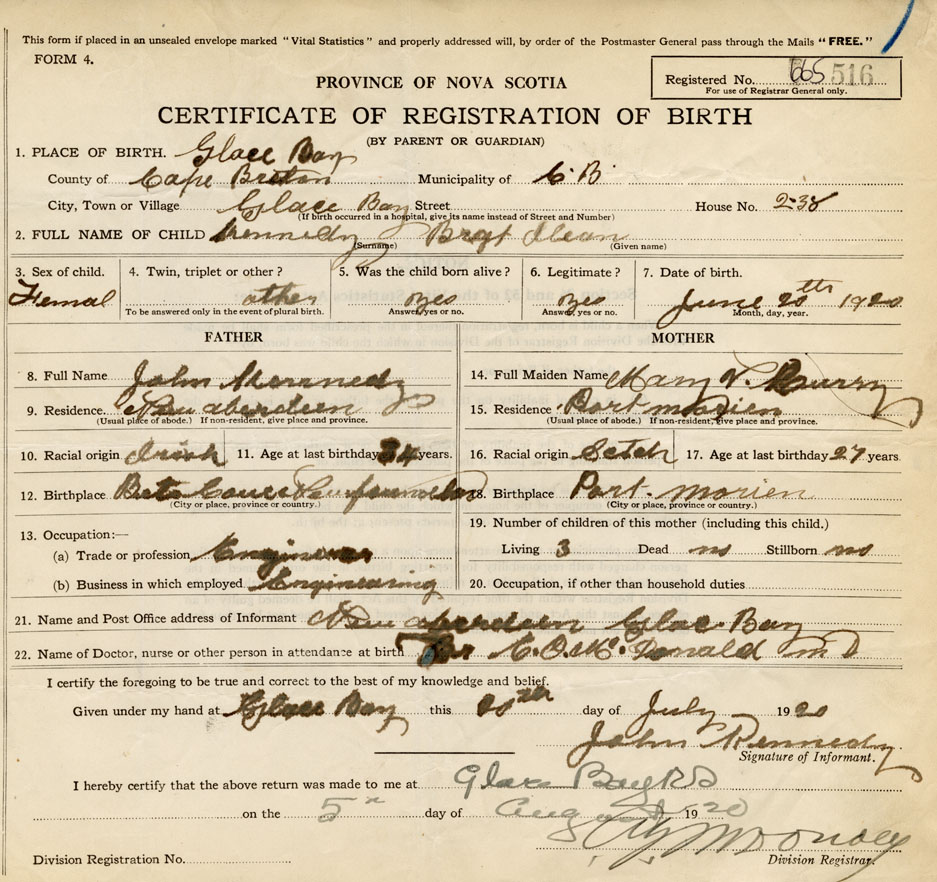 This form if placed in an unsealed envelope marked "Vital Statistics" and properly addressed will, by order of the Postmaster General pass through the Mails "FREE."
FORM 4.
Registered No. 665 516
For use of Registrar General only.
PROVINCE OF NOVA SCOTIA
CERTIFICATE OF REGISTRATION OF BIRTH
(BY PARENT OR GUARDIAN)
1. PLACE OF BIRTH. Glace Bay
County of Cape Breton Municipality of C.B
City, Town or Village Glace Bay Street House No. 238
(If birth occurred in a hospital, give its name instead of Street and Number)
2. FULL NAME OF CHILD Kennedy
(Surname) (Given name)
3. Sex of child. 4. Twin, triplet or other? 5. Was the child born alive? 6. Legitimate? 7. Date of birth.
Femal other yes yes June 20th 1920
To be answered only in the event of plural birth. Answer, yes or no. Answer, yes or no. Month, day, year.
FATHER MOTHER
8. Full Name John Kennedy 14. Full Maiden Name Mary
9. Residence. New aberdeen 15. Residence Port morien
(Usual place of abode.) If non-resident, give place and province. (Usual place of abode.) If non-resident, give place and province.
10. Racial origin Irish 11. Age at last birthday 34 years. 16. Racial origin Scotch 17. Age at last birthday 27 years
12. Birthplace 18. Birthplace Port. morien
(City or place, province or country.) (City or place, province or country.)
19. Number of children of this mother (including this child.)
13. Occupation:—
(a) Trade or profession Engineer Living 3 Dead no Stillborn no
(b) Business in which employed Engineering 20. Occupation, if other than household duties
21. Name and Post Office address of Informant New aberdeen Glac. Bay
22. Name of Doctor, nurse or other person in attendance at birth Mc.Donald M D
I certify the foregoing to be true and correct to the best of my knowledge and belief.
Given under my hand at Glace Bay this 20th day of July 1920
John Kennedy
Signature of Informant.
I hereby certify that the above return was made to me at Glace Bay
on the 5 day of August 1920
Division Registration No. Division Registrar.